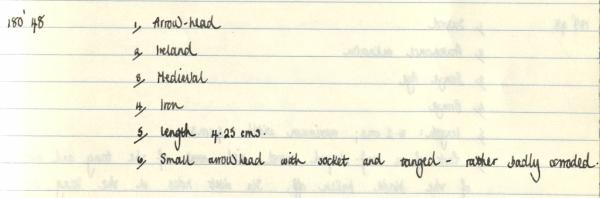 180' 48 1, Arrow-head
2, Ireland
3, Medieval
4, Iron
5, Length 4.25 cms.
6, Small arrowhead with socket and ranged - rather badly corroded.